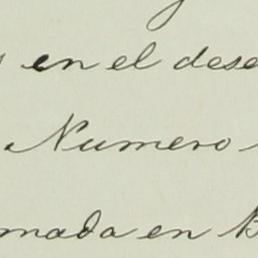 en el dese
Numero
mada en B